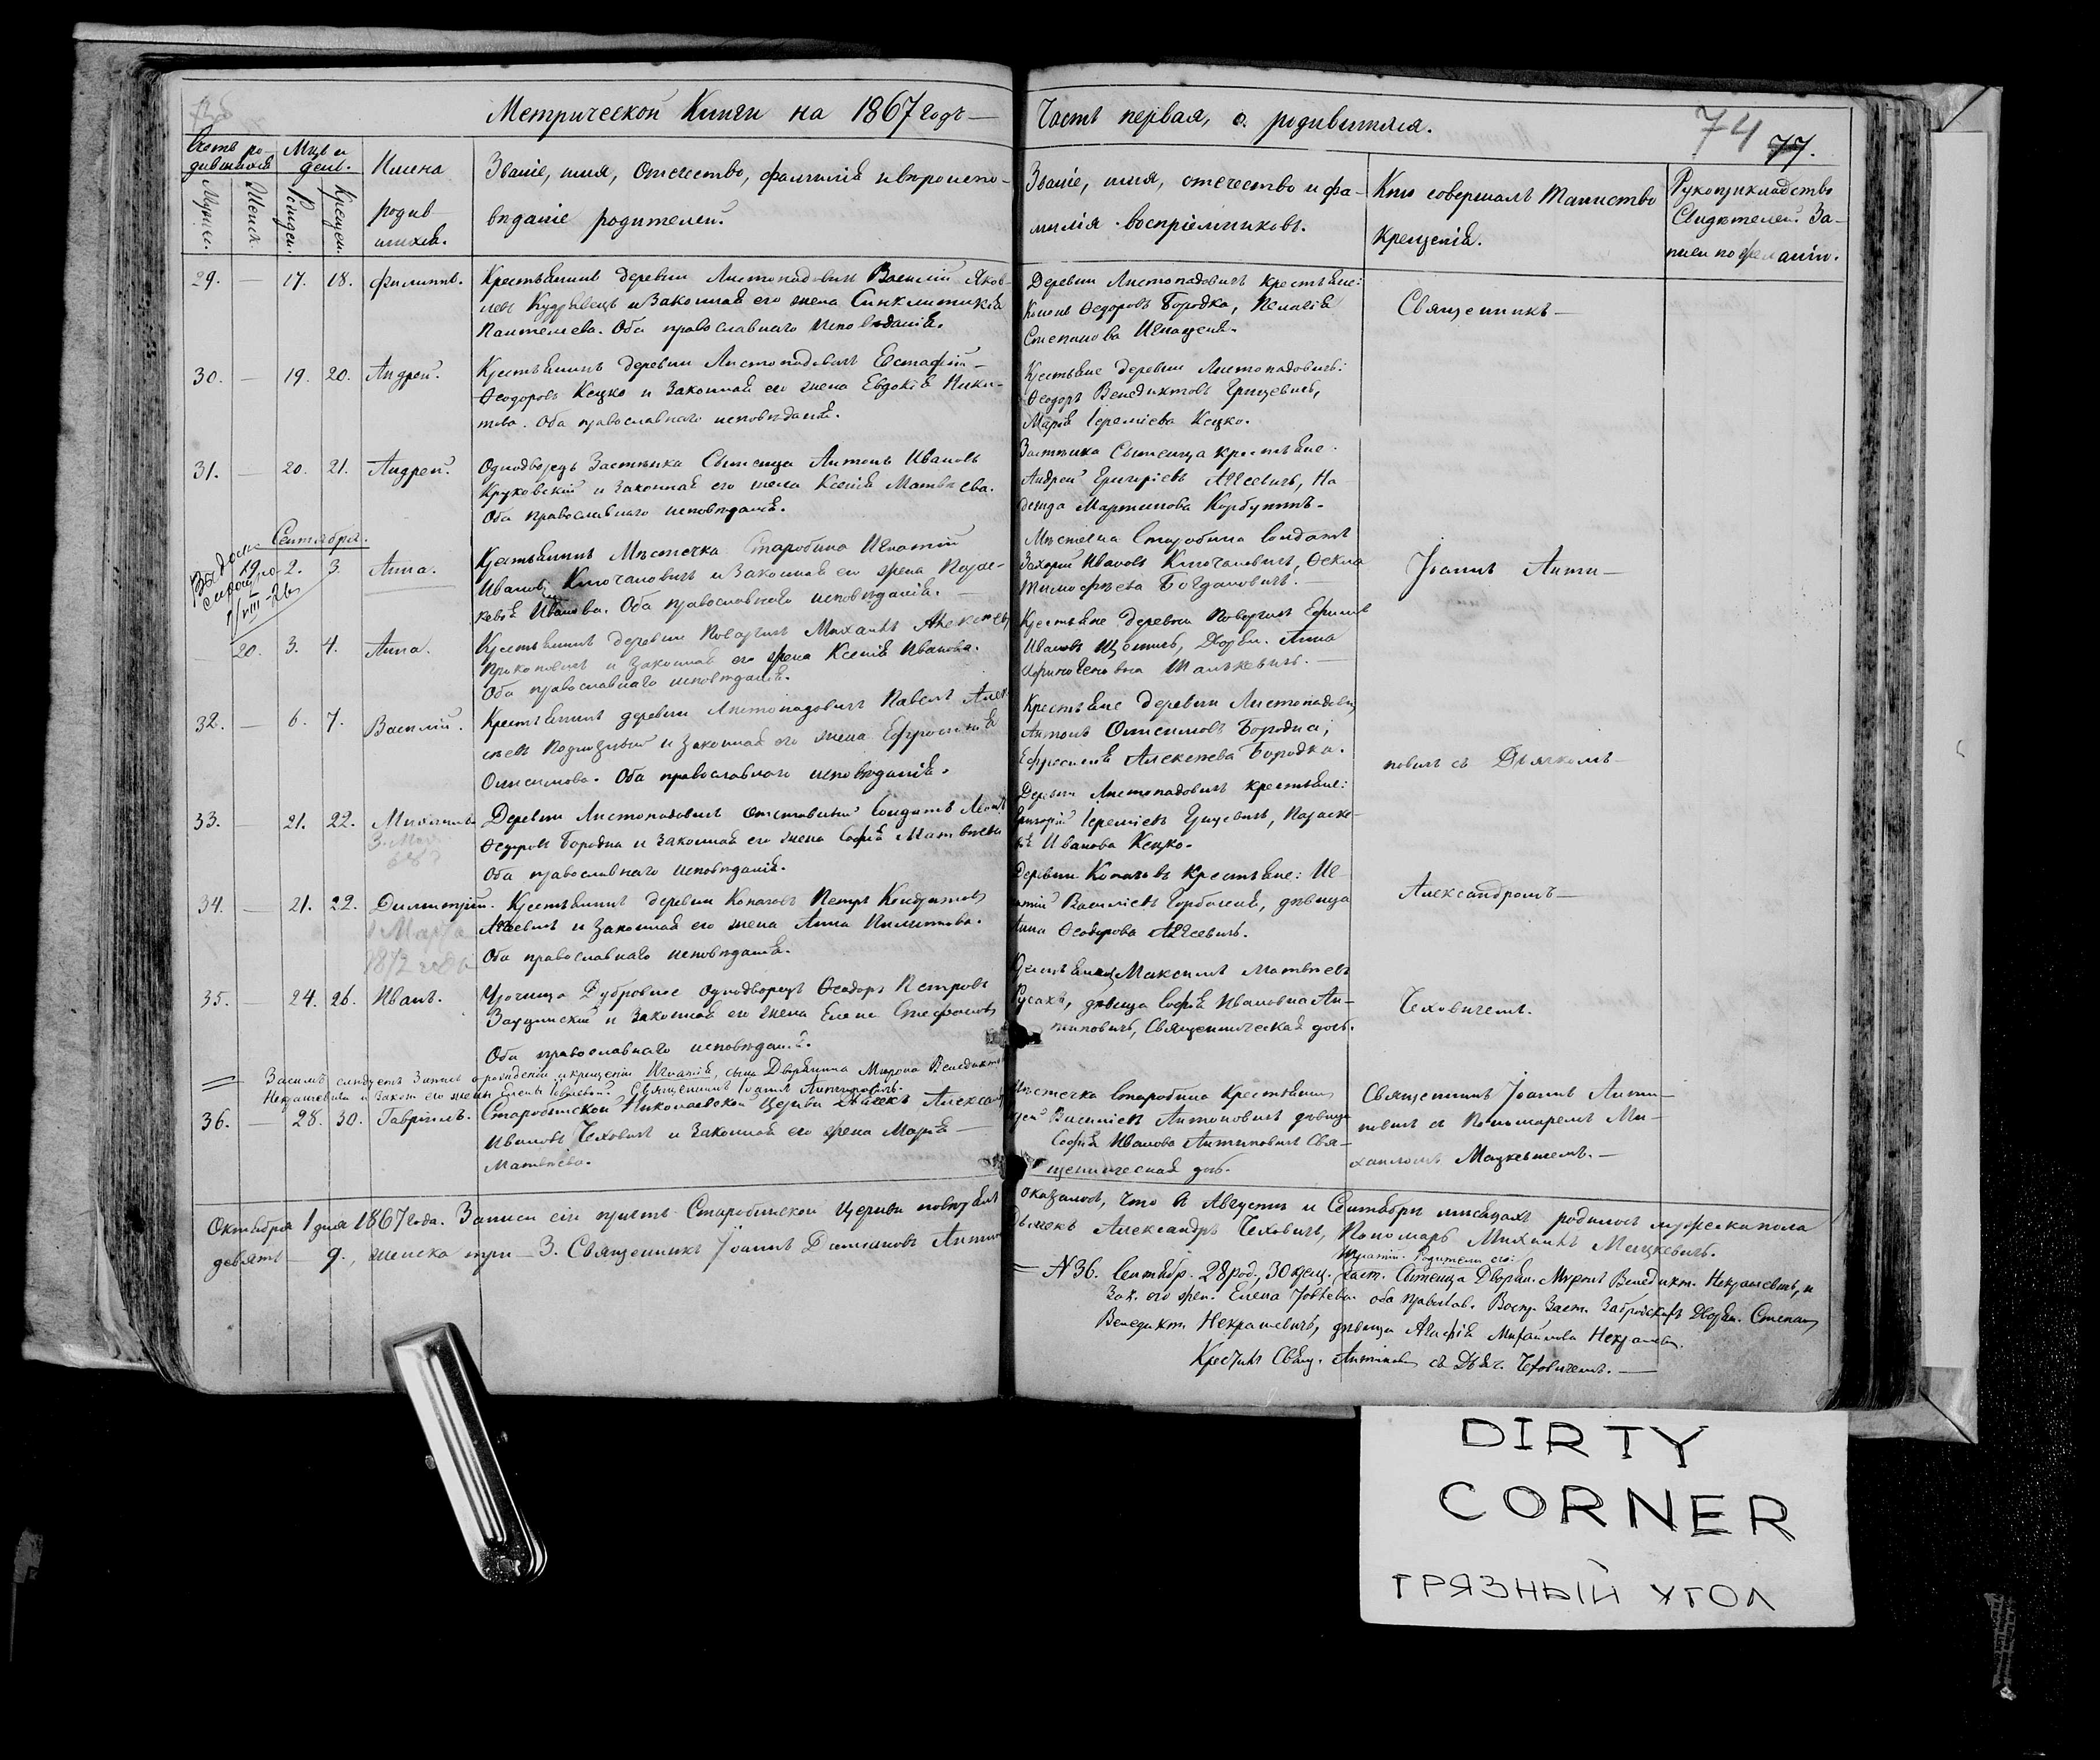 Метрической Книги на 1867 годъ —
Часть первая, о родившихся.
74 77.
Счетъ ро-
дившихся
Мужеск.
Женск.
Мцъ и
день.
Рожден.
Крещен.
Имена
родив
шихся.
Званіе, имя, отечество, фамилія и вѣроиспо-
вѣданіе родителей.
Званіе, имя, отечество и фа-
милія воспріемниковъ.
Кто совершалъ таинство
Крещенія.
Рукоприкладство
Свидѣтелей. За-
писи по желанію.
29. — 17. 18. Филиппъ. Крестьянинъ деревни Листопадовичъ Василій Яков-
левъ Кудравецъ и законная его жена Синклитикія
Пантелеева. Оба православнаго исповѣданія.
Деревни Листопадовичъ крестьяне:
Ѳедоровъ Бородка, Пелагія
Степанова Игнацена.
Священникъ —
30. — 19. 20. Андрей. Крестьянинъ деревни Листопадовичъ Евстафій
Ѳеодоровъ Кецко и законная его жена Евдокія Ники-
тина. Оба православнаго исповѣданія.
Крестьяне деревни Листопадовичъ:
Ѳеодоръ Венедиктовъ Грицевичъ,
Марія Іереміева Кецко.
31. — 20. 21. Андрей. Однодворецъ Застѣнка Сытеища Антонъ Ивановъ
Круковскій и законная его жена Ксенія Матвѣева.
Оба православнаго исповѣданія.
Застѣнка Сытеища крестьяне
Андрей Григоріевъ Агѣевичъ, На-
дежда Мартинова Корбуттъ.
Сентября.
19. 2. 3. Анна. Крестьянинъ Мѣстечка Старобина Игнатій
Ивановъ Ключановичъ и законная его жена Параске-
кевія Иванова. Оба православнаго исповѣданія.
Мѣстечка Старобина Солдатъ
Захарій Ивановъ Ключановичъ, Ѳекла
Тимофѣева Богдановичъ. —
Іоаннъ Анти-
20. 3. 4. Анна. Крестьянинъ деревни Поварчичъ Михаилъ Алексѣевъ
Прокоповичъ и законная его жена Ксенія Иванова.
Оба православнаго исповѣданія.
Крестьяне деревни Поварчичъ Ефимъ
Ивановъ Дворян. Анна
32. — 6. 7. Василій. Крестьянинъ деревни Листопадовичъ Павелъ Алек-
сѣевъ и законная его жена Ефросинія
Онисимова. Оба православнаго исповѣданія.
Крестьяне деревни Листопадовичъ
Антонъ Онисимовъ Бородка,
Ефросинія Алексѣева Бородка.
повичъ съ Дьячкомъ
33. — 21. 22. Михаилъ Деревни Листопадовичъ отставной Солдатъ
Ѳедоровъ Бородка и законная его жена Софія Матвѣева
Оба православнаго исповѣданія.
Деревни Листопадовичъ крестьяне:
Григорій Іереміевъ Грицевичъ, Параске-
вія Иванова Кецко.
34. — 21. 22. Димитрій. Крестьянинъ деревни Копачовъ Петръ Кондратовъ
Агѣевичъ и законная его жена Анна Филиппова.
Оба православнаго исповѣданія.
1 Марта
1872 года
Деревни Копачовъ Крестьяне: Иг-
натій Васильевъ Горбаченя, дѣвица
Анна Ѳеодорова Агѣевичъ.
Александромъ —
35. — 24. 26. Иванъ. Урочища Дубровное однодворецъ Ѳеодоръ Петровъ
и законная его жена Елена Стефанова
Оба православнаго исповѣданія.
Крестьянинъ Максимъ Матвѣевъ
Русакъ, дѣвица Софія Ивановна Ан-
типовичъ, Священническая дочь.
Чеховичемъ.
Засимъ слѣдуетъ Запись о рожденіи и крещеніи Игнатія, сына Дворянина Мирона Венедиктова
Некрашевича и закон. его жены Елены Іовлевой. Священникъ Іоаннъ Антиповичъ.
36. — 28. 30. Гавріилъ. Старобинской Николаевской Церкви Дьячекъ Александръ
Ивановъ Чеховичъ и законная его жена Марія
Матвѣева.
Мѣстечка Старобина Крестьянинъ
Васильевъ Антоновичъ дѣвица
Софія Иванова Антиповичъ Свя-
щенническая дочь.
Священникъ Іоаннъ Анти-
повичъ съ Пономаремъ Ми-
хаиломъ Мацкевичемъ. —
Октября 1 дня 1867 года. Записи сіи причтъ Старобинской Церкви повѣрялъ оказалось, что въ Августѣ и Сентябрѣ мѣсяцахъ родилось мужеска пола
девять — 9., женска три — 3. Священникъ Іоаннъ Антиповичъ Дьячекъ Александръ Чеховичъ, Пономарь Михаилъ Мацкевичъ.
Игнатій. Родители его:
— № 36. Сентябр. 28 род., 30 крещ. заст. Сытеища Дворян. Миронъ Венедикт. Некрашевичъ, и
Зак. его жен. Елена Іовлева оба православ. Восп. Заст. Дворян. Степанъ
Венедикт. Некрашевичъ, дѣвица Агафія Михайлова Некрашевич.
Крестилъ Свящ. Антиповичъ съ Дьяч. Чеховичемъ. —
DIRTY
CORNER
ГРЯЗНЫЙ УГОЛ